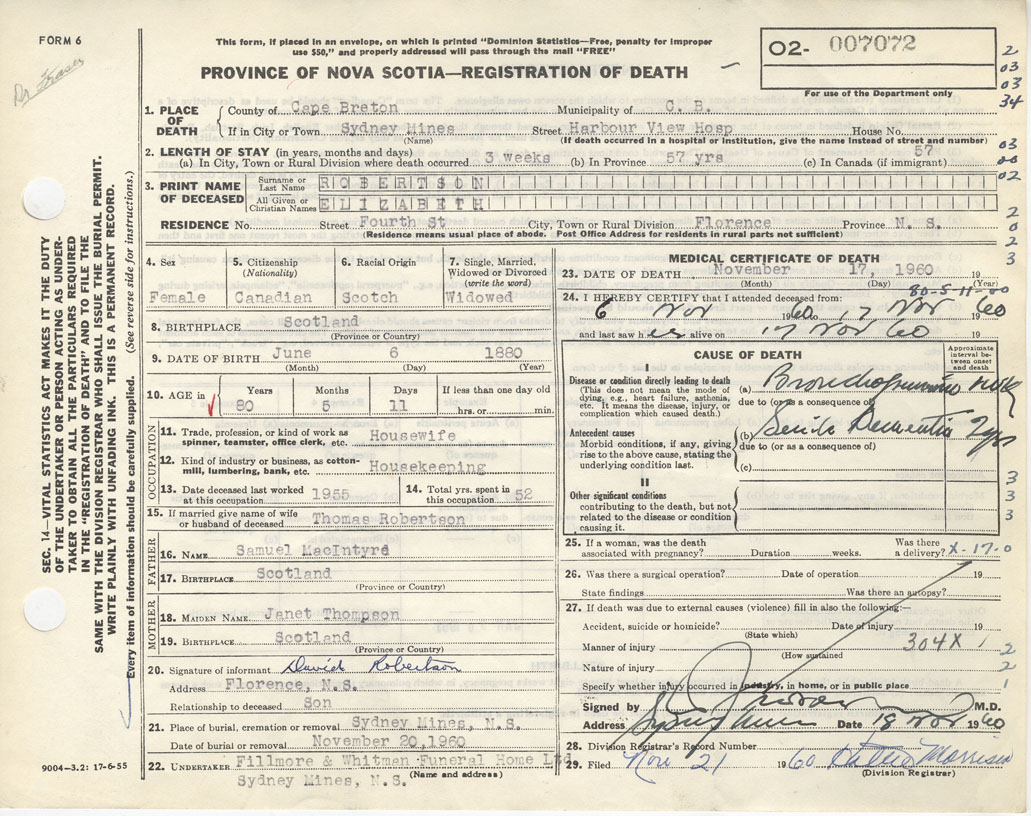 FORM 6
Dr Fraser
This form, if placed in an envelope, on which is printed "Dominion Statistics—Free, penalty for improper
use $50," and properly addressed will pass through the mail "FREE"
PROVINCE OF NOVA SCOTIA—REGISTRATION OF DEATH
O2- 007072
For use of the Department only
2
03
03
34
03
00
02
2
0
2
3
1. PLACE OF DEATH
County of Cape Breton Municipality of C. B.
If in City or Town Sydney Mines Street Harbour View Hosp House No.
(Name) (If death occurred in a hospital or institution, give the name instead of street and number)
2. LENGTH OF STAY (in years, months and days)
(a) In City, Town or Rural Division where death occurred 3 weeks (b) In Province 57 yrs (c) In Canada (if immigrant) 57
3. PRINT NAME OF DECEASED
Surname or Last Name ROBERTSON
All Given or Christian Names ELIZABETH
RESIDENCE No. Street Fourth St City, Town or Rural Division Florence Province N. S.
(Residence means usual place of abode. Post Office Address for residents in rural parts not sufficient)
SEC. 14—VITAL STATISTICS ACT MAKES IT THE DUTY
OF THE UNDERTAKER OR PERSON ACTING AS UNDER-
TAKER TO OBTAIN ALL THE PARTICULARS REQUIRED
IN THE "REGISTRATION OF DEATH" AND TO FILE THE
SAME WITH THE DIVISION REGISTRAR WHO SHALL ISSUE THE BURIAL PERMIT.
WRITE PLAINLY WITH UNFADING INK. THIS IS A PERMANENT RECORD.
Every item of information should be carefully supplied. (See reverse side for instructions.)
4. Sex Female
5. Citizenship (Nationality) Canadian
6. Racial Origin Scotch
7. Single, Married, Widowed or Divorced (write the word) Widowed
8. BIRTHPLACE Scotland
(Province or Country)
9. DATE OF BIRTH June 6 1880
(Month) (Day) (Year)
10. AGE in Years 80 Months 5 Days 11 If less than one day old hrs. or min.
OCCUPATION
11. Trade, profession, or kind of work as
spinner, teamster, office clerk, etc. Housewife
12. Kind of industry or business, as cotton-
mill, lumbering, bank, etc. Housekeeping
13. Date deceased last worked
at this occupation 1955
14. Total yrs. spent in
this occupation 52
15. If married give name of wife
or husband of deceased Thomas Robertson
FATHER
16. NAME Samuel MacIntyre
17. BIRTHPLACE Scotland
(Province or Country)
MOTHER
18. MAIDEN NAME Janet Thompson
19. BIRTHPLACE Scotland
(Province or Country)
20. Signature of informant David Robertson
Address Florence, N.S.
Relationship to deceased Son
21. Place of burial, cremation or removal Sydney Mines, N.S.
Date of burial or removal November 20,1960
22. UNDERTAKER Fillmore & Whitman Funeral Home Ltd
(Name and address)
Sydney Mines, N.S.
9004—3.2: 17-6-55
MEDICAL CERTIFICATE OF DEATH
23. DATE OF DEATH November 17, 1960 19
(Month) (Day) (Year)
80-5-11-00
24. I HEREBY CERTIFY that I attended deceased from:
6 Nov 1960 to 17 Nov 1960
and last saw h er alive on 17 Nov 60 19
CAUSE OF DEATH
Approximate interval between onset and death
I
Disease or condition directly leading to death
(This does not mean the mode of
dying, e.g., heart failure, asthenia,
etc. It means the disease, injury, or
complication which caused death.)
(a) Bronchopneumonia
due to (or as a consequence of)
Antecedent causes
Morbid conditions, if any, giving
rise to the above cause, stating the
underlying condition last.
(b) Senile Dementia
due to (or as a consequence of)
(c)
II
Other significant conditions
contributing to the death, but not
related to the disease or condition
causing it.
3
3
3
25. If a woman, was the death
associated with pregnancy? Duration weeks. Was there
a delivery? X-17-0
26. Was there a surgical operation? Date of operation 19
State findings Was there an autopsy?
27. If death was due to external causes (violence) fill in also the following:—
Accident, suicide or homicide? Date of injury 19
(State which)
Manner of injury 304X 1
(How sustained
Nature of injury
Specify whether injury occurred in industry, in home, or in public place
2
2
1
Signed by M.D.
Address Sydney Mines Date 18 Nov 1960
28. Division Registrar's Record Number
29. Filed Nov 21 1960 Morrison
(Division Registrar)